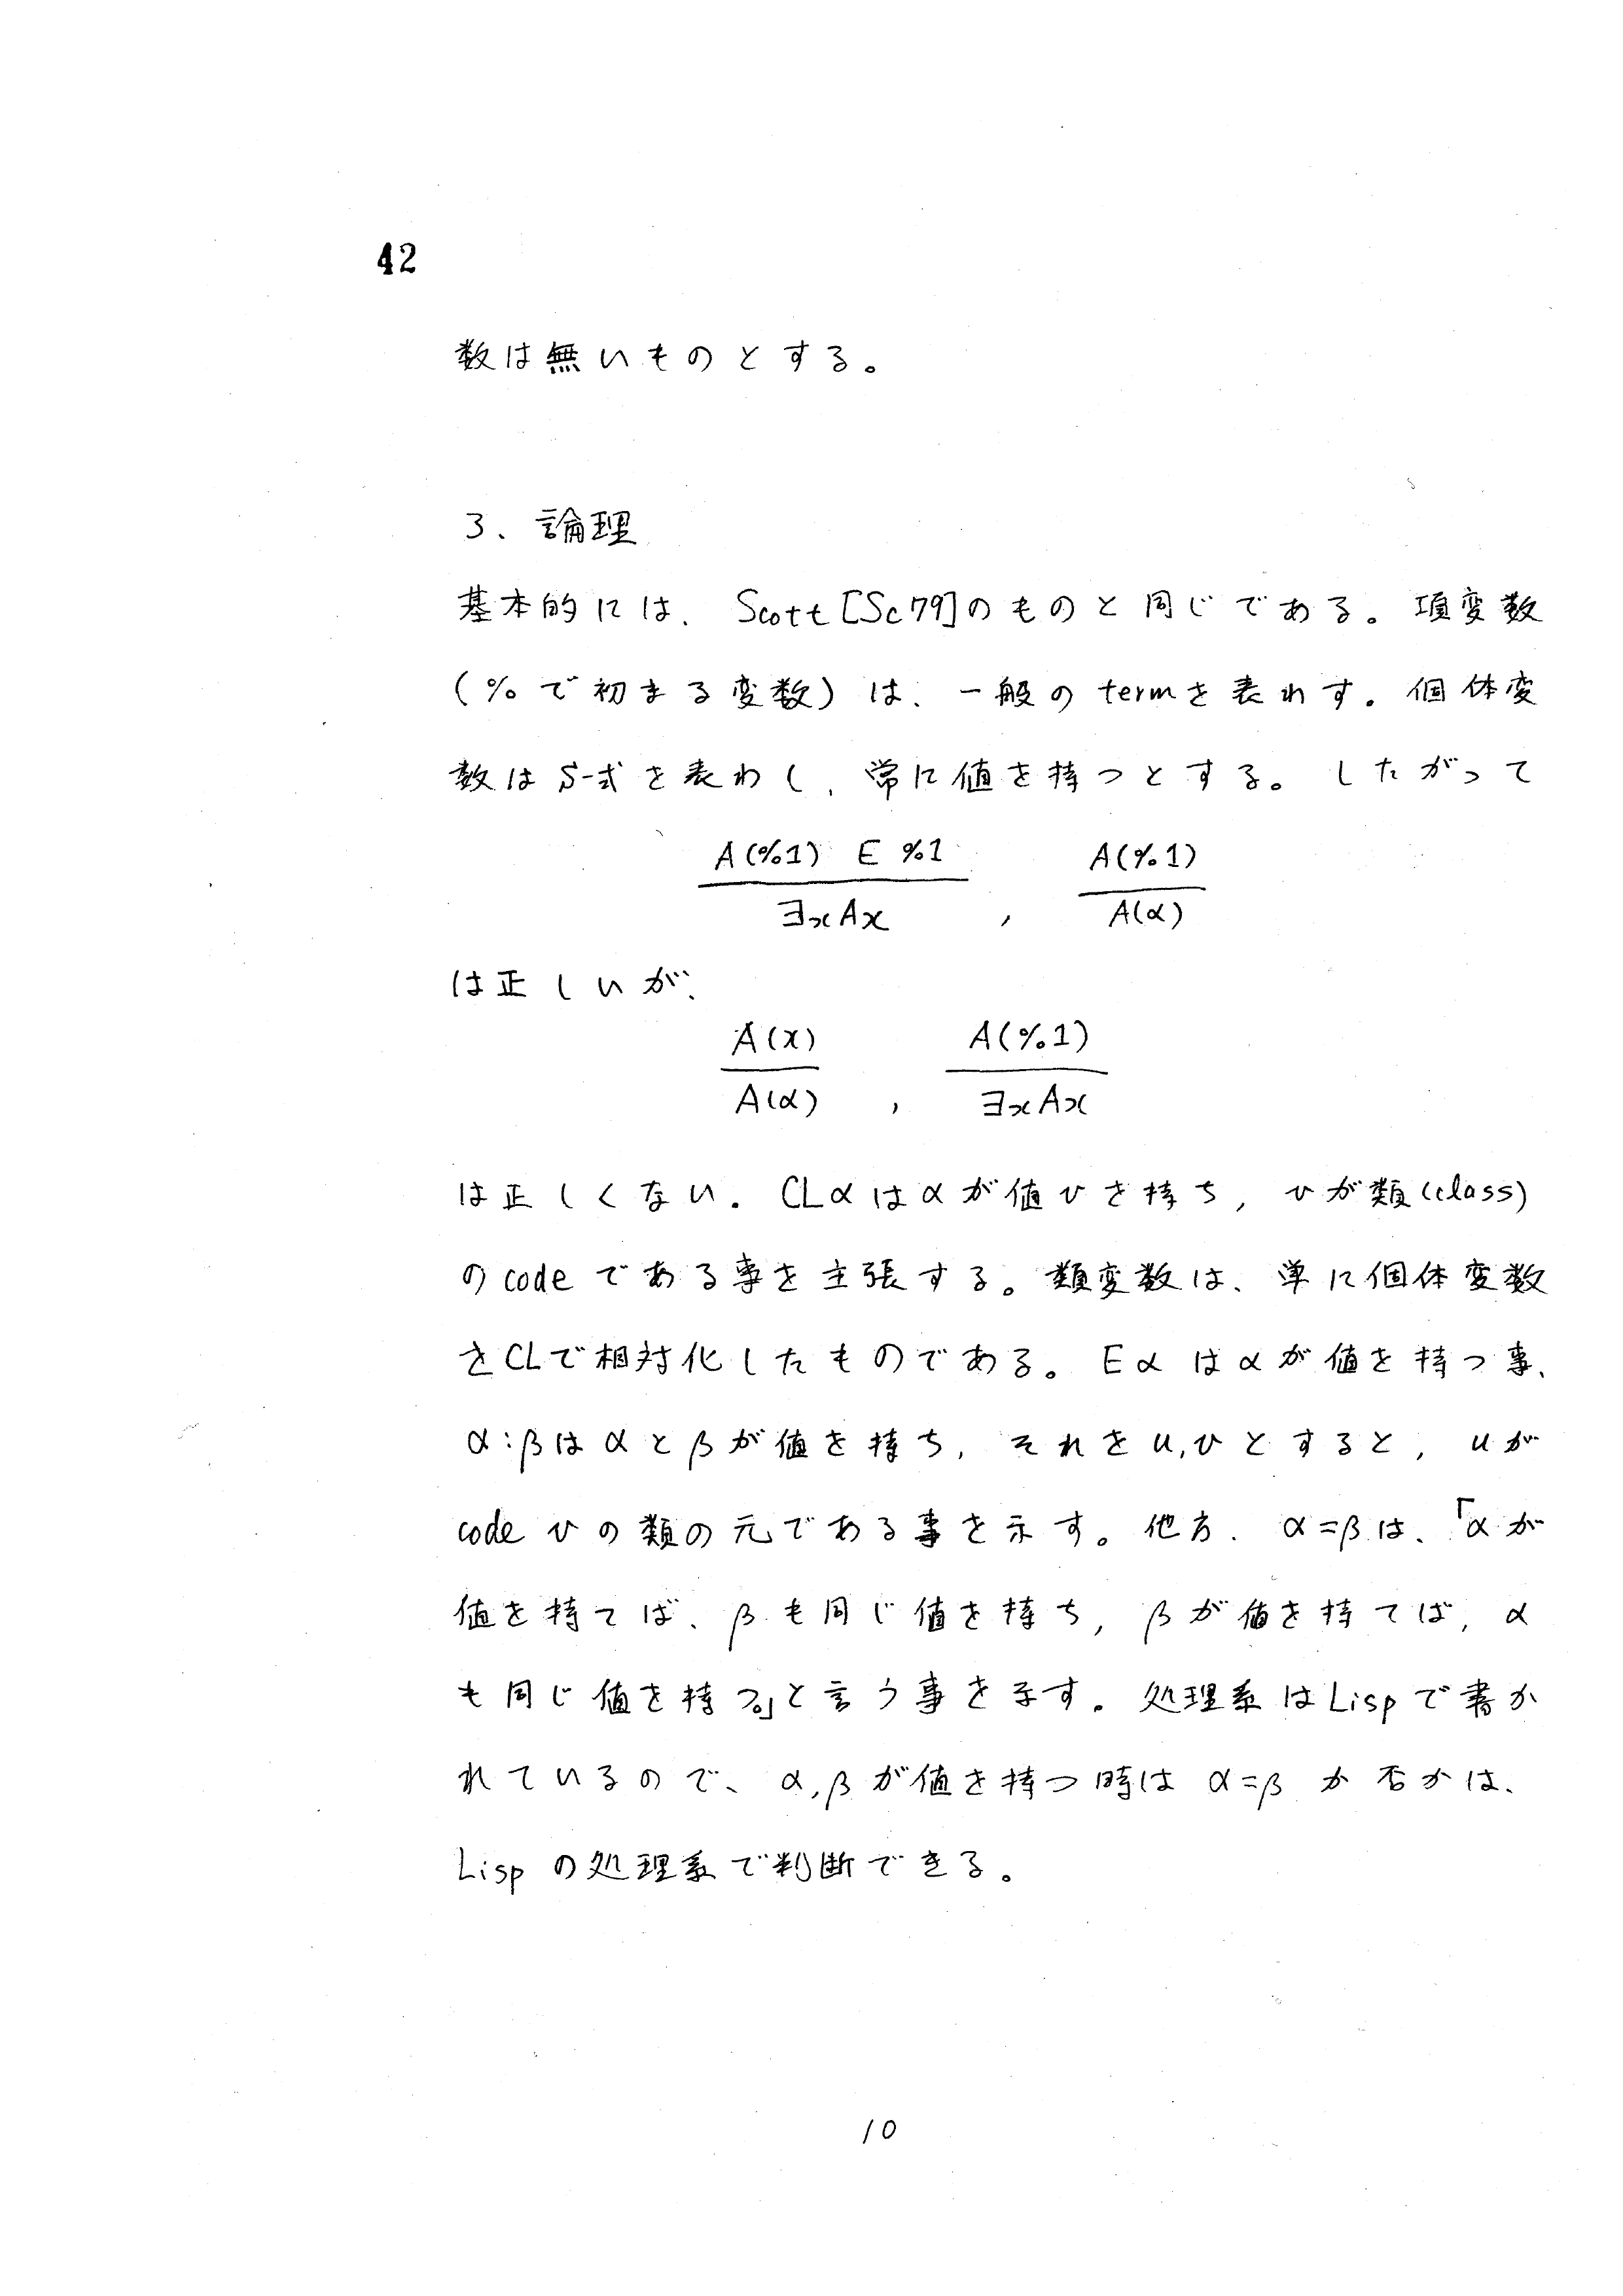 42
数は無いものとする。
3、論理
基本的には、Scott[Sc79]のものと同じである。項変数
(%で初まる変数)は、一般のtermを表わす。個体変
数はS-式を表わし、常に値を持つとする。したがって
A(%1) E %1 A(%1)
∃xAx , A(α)
は正しいが、
A(x) A(%1)
A(α) , ∃xAx
は正しくない。CLαはαが値vを持ち, vが類(class)
のcodeである事を主張する。類変数は、単に個体変数
をCLで相対化したものである。Eαはαが値を持つ事、
α:βはαとβが値を持ち, それをu,vとすると, uが
code vの類の元である事を示す。他方、α=βは、「αが
値を持てば、βも同じ値を持ち, βが値を持てば, α
も同じ値を持つ。」と言う事を示す。処理系はLispで書か
れているので、α,βが値を持つ時はα=βか否かは、
Lispの処理系で判断できる。
10